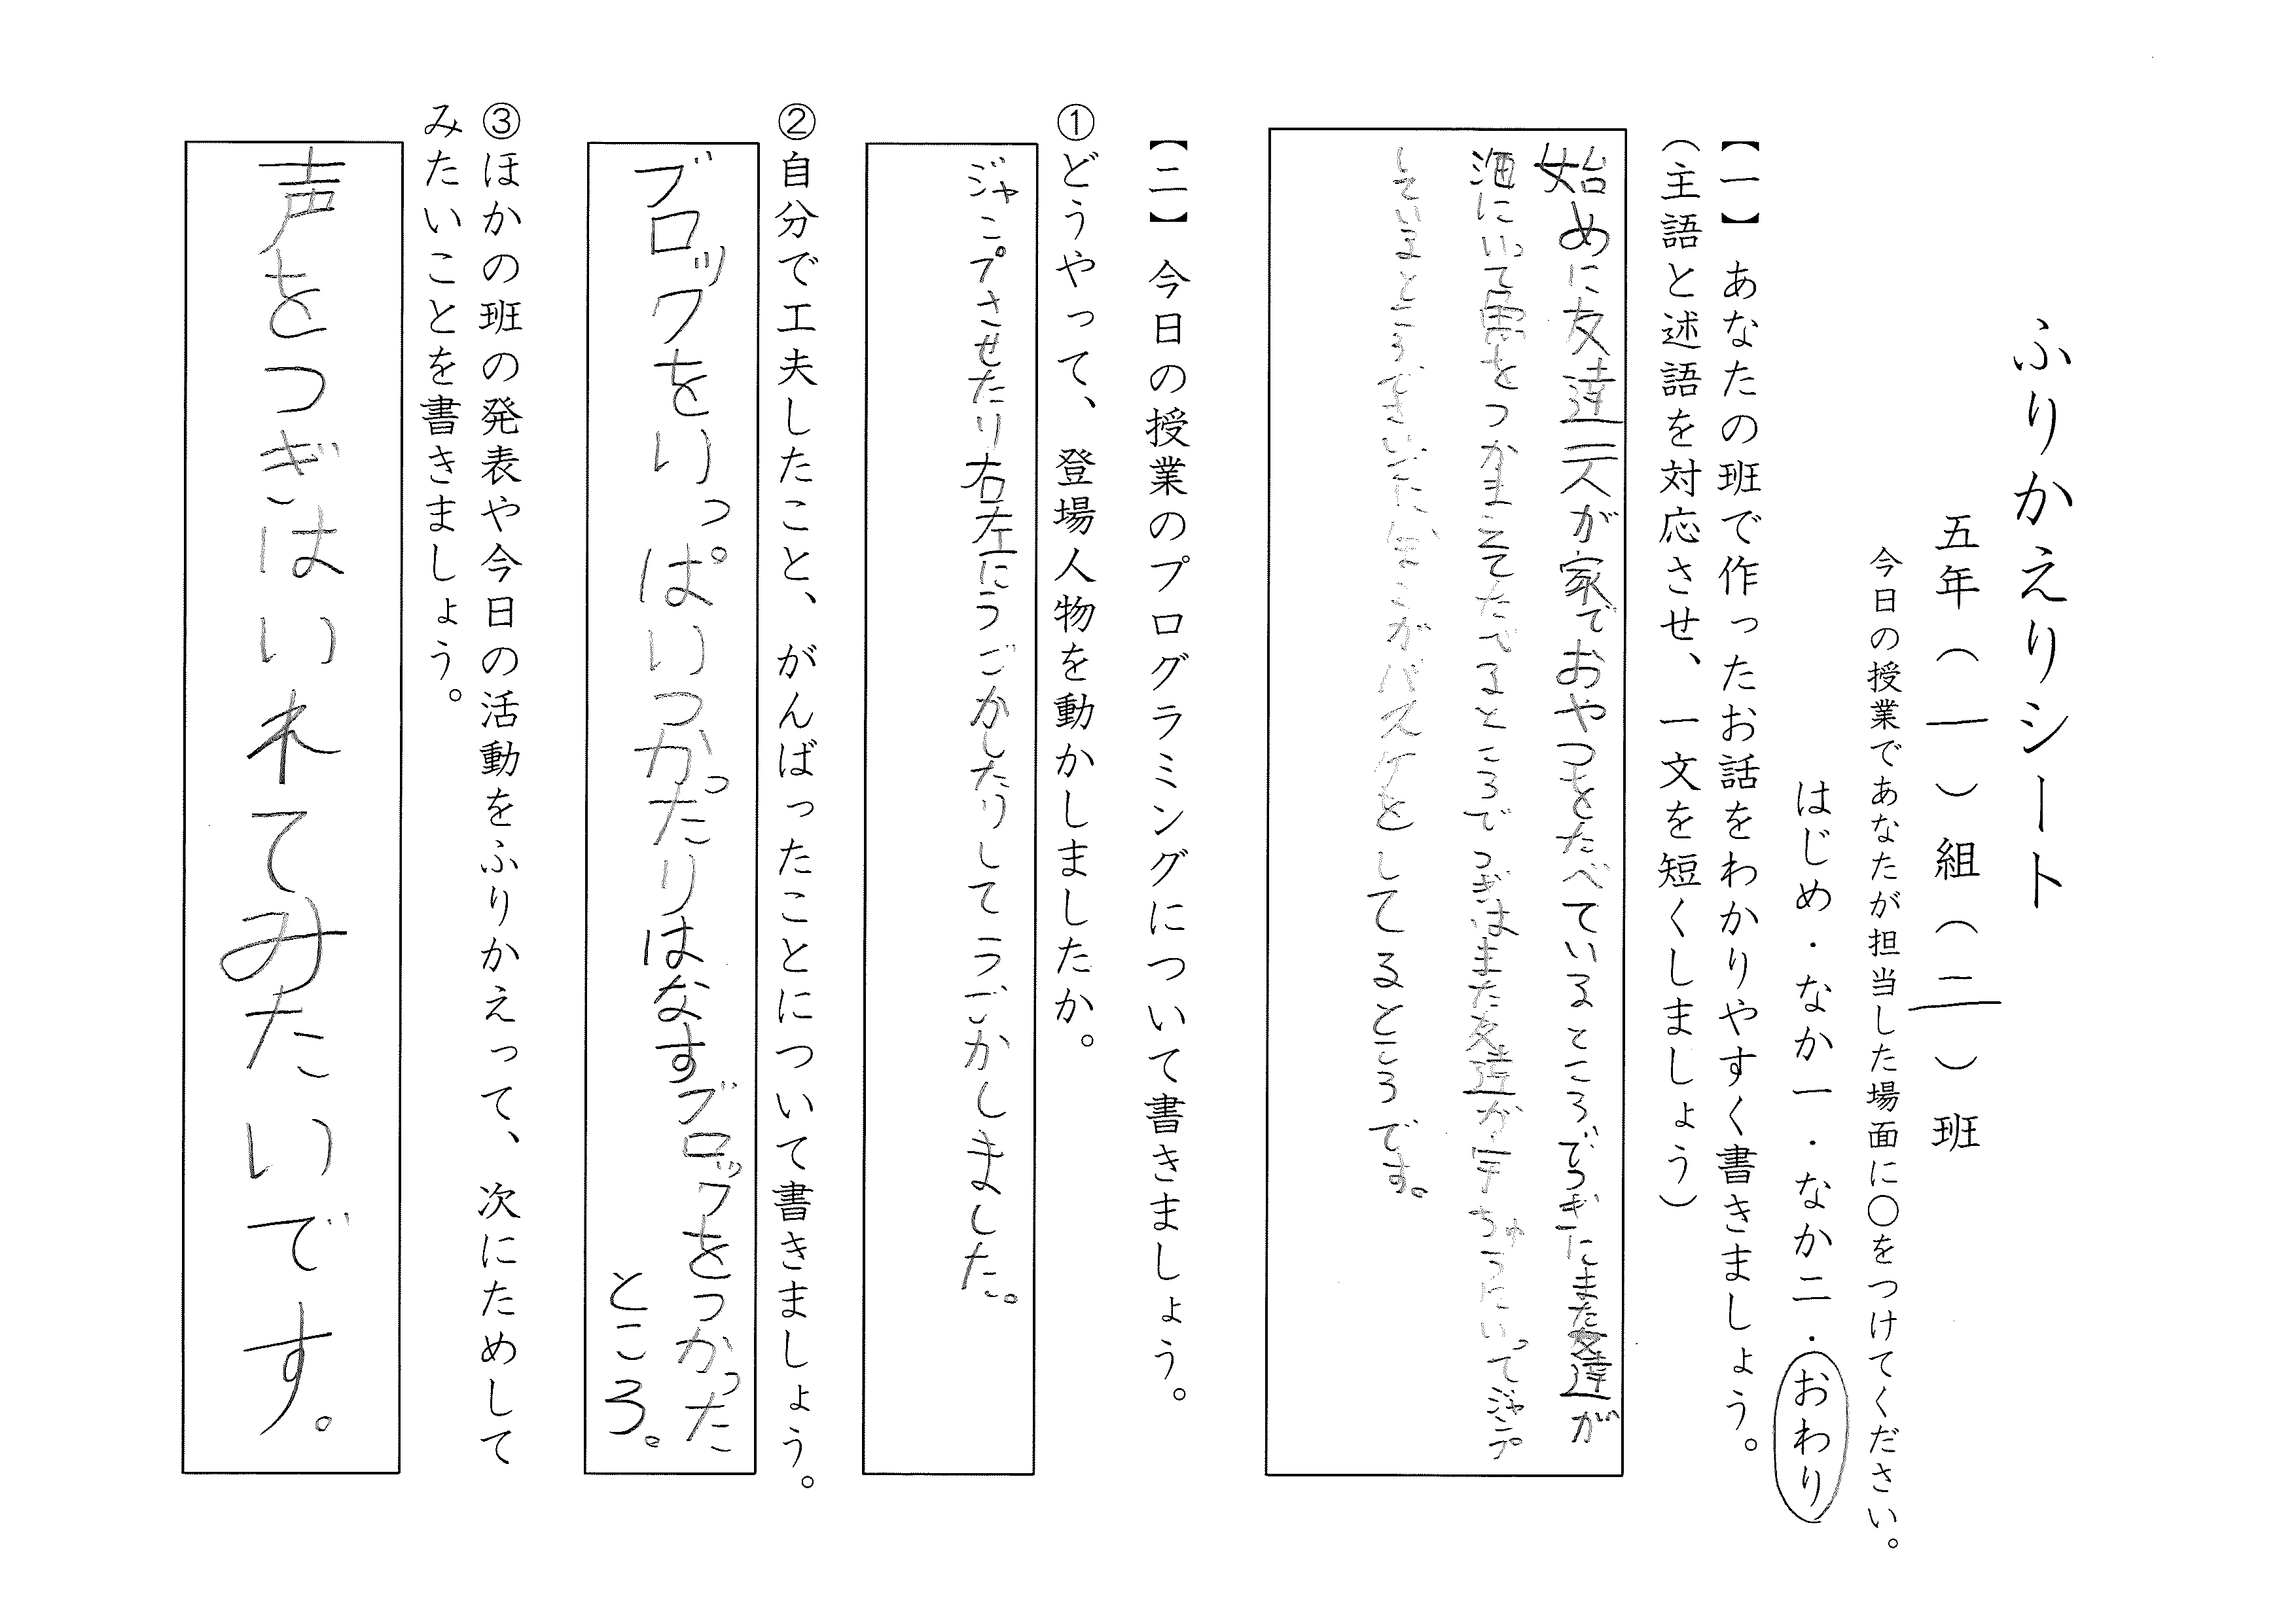 ふりかえりシート
五年（一）組（二）班
今日の授業であなたが担当した場面に○をつけてください。
はじめ・なか一・なか二・おわり
【一】あなたの班で作ったお話をわかりやすく書きましょう。
（主語と述語を対応させ、一文を短くしましょう）
始めに友達二人が家でおやつをたべているところでつぎにまた友達が
にいって魚をつかまえてたべるところでつぎはまた友達が宇ちゅうにいってジャンプ
していまところでさいごにがバスケをしてるところです。
【二】今日の授業のプログラミングについて書きましょう。
①どうやって、登場人物を動かしましたか。
ジャンプさせたり右左にうごかしたりしてうごかしました。
②自分で工夫したこと、がんばったことについて書きましょう。
ブロックをいっぱいつかったりはなすブロックをつかった
ところ。
③ほかの班の発表や今日の活動をふりかえって、次にためして
みたいことを書きましょう。
声をつぎはいれてみたいです。